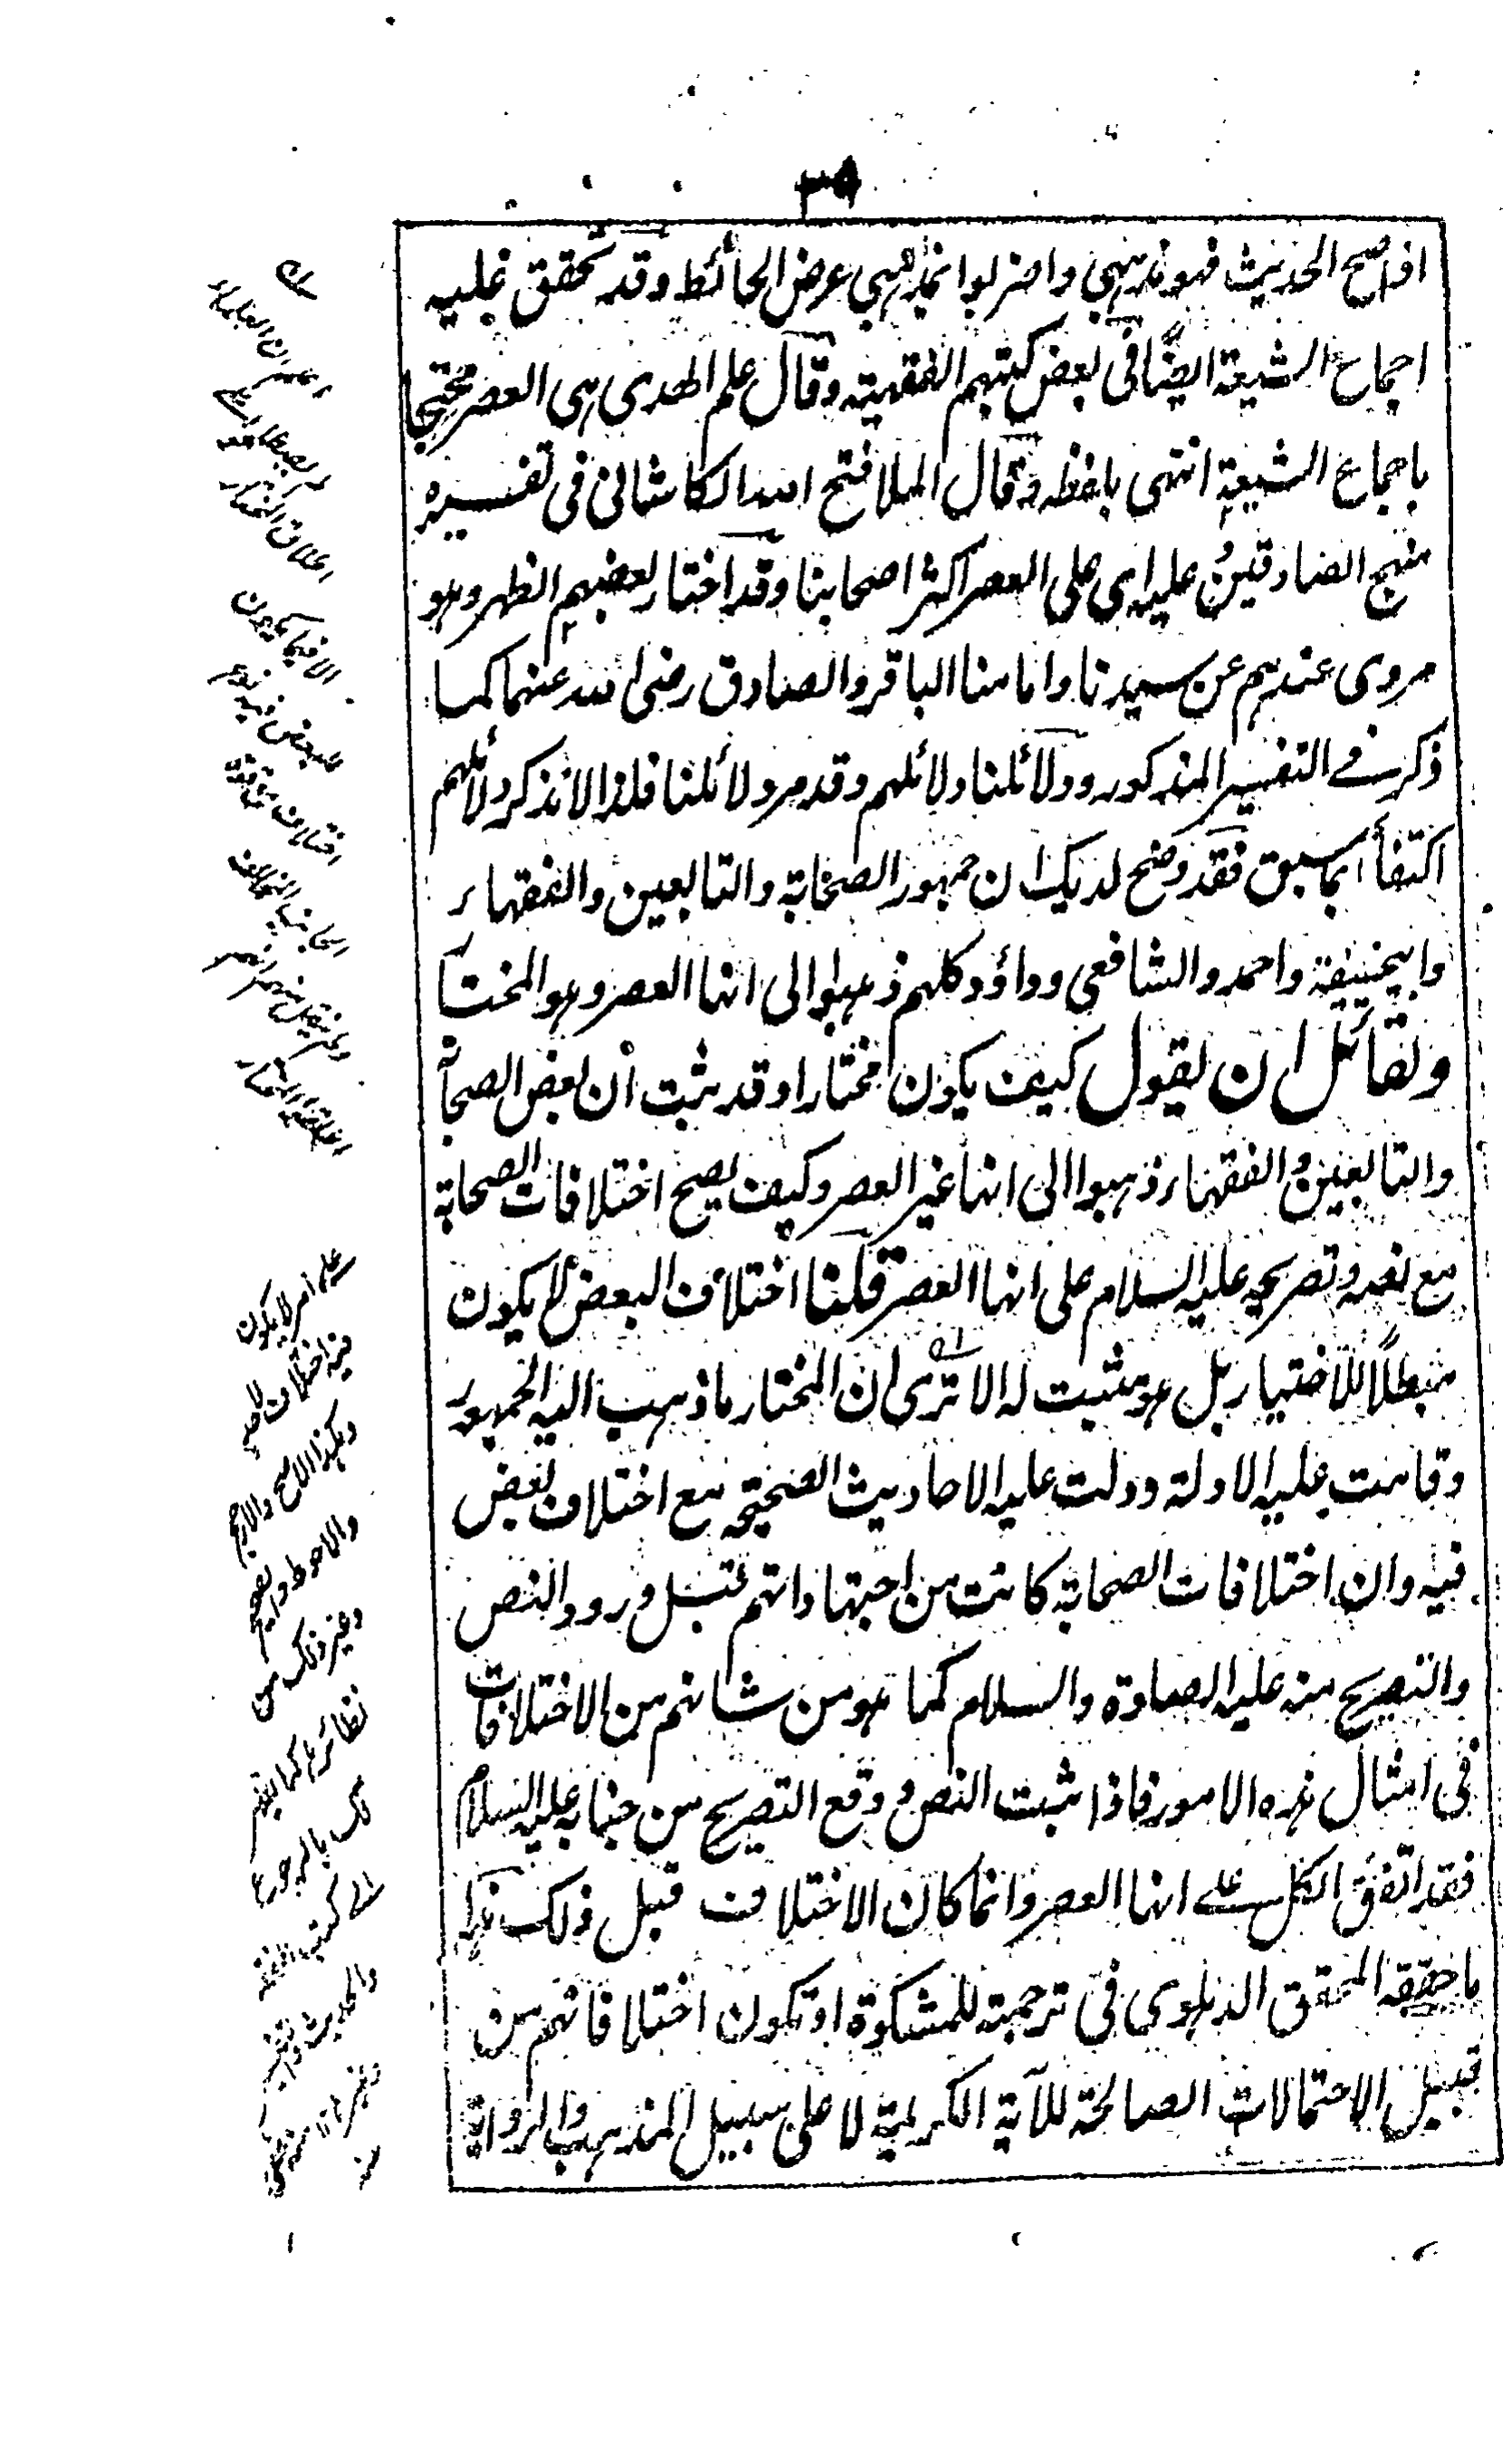 ٣٥
اذا صح الحديث فهو مذهبي واضربوا بمذهبي عرض الحائط وقد تحقق عليه
اجماع الشيعة ايضًا في بعض كتبهم الفقهية وقال علم الهدى هي العصر محتجا
باجماع الشيعة انتهى بلفظه وقال الملا فتح الله الكاشاني في تفسيره
منهج الصادقين وعليه اى على العصر اكثر اصحابنا وقد اختار بعضهم الظهر وهو
مروى عندهم عن سيدنا وامامنا الباقر والصادق رضى الله عنهما كما
ذكر فے التفسير المذكور ودلائلنا دلائلهم وقد مر دلائلنا فلذا لا نذكر دلائلهم
اكتفاءً بما سبق فقد وضح لديك ان جمهور الصحابة والتابعين والفقهاء
وابيحنيفة واحمد والشافعي وداؤد كلهم ذهبوا الى انها العصر وهو المختار
ولقائل ان يقول كيف يكون مختارا وقد ثبت ان بعض الصحابة
والتابعين والفقهاء ذهبوا الى انها غير العصر وكيف يصح اختلافات الصحابة
مع نصه وتصريحه عليه السلام على انها العصر قلنا اختلاف البعض لا يكون
مبطلًا للاختيار بل هو مثبت له الا ترى ان المختار ما ذهب اليه الجمهور
وقامت عليه الادلة ودلت عليه الاحاديث الصحيحة مع اختلاف بعض
فيه وان اختلافات الصحابة كانت من اجتهاداتهم قبل ورود النص
والتصريح منه عليه الصلوة والسلام كما هو من شانهم من الاختلافات
في امثال هذه الامور فاذا ثبت النص و وقع التصريح من جنابه عليه السلام
فقد اتفق الكل علے انها العصر وانما كان الاختلاف قبل ذلك هذا
ما حققه المحقق الدهلوي في ترجمة للمشكوة او تكون اختلافاتهم من
قبيل الاحتمالات الصالحة للآية الكريمة لا على سبيل المذهب والرواية
اطلاق المختار
الا فيما يكون
للبعض فيه
الى جانب المخالف
علے امر لا يكون
فيه اختلاف لاحد
وهكذا الاصح والارجح
والاحوط
وغير ذلك من
نظائرها كما يظهر
لك بالرجوع
الے كتب الفقه
والحديث